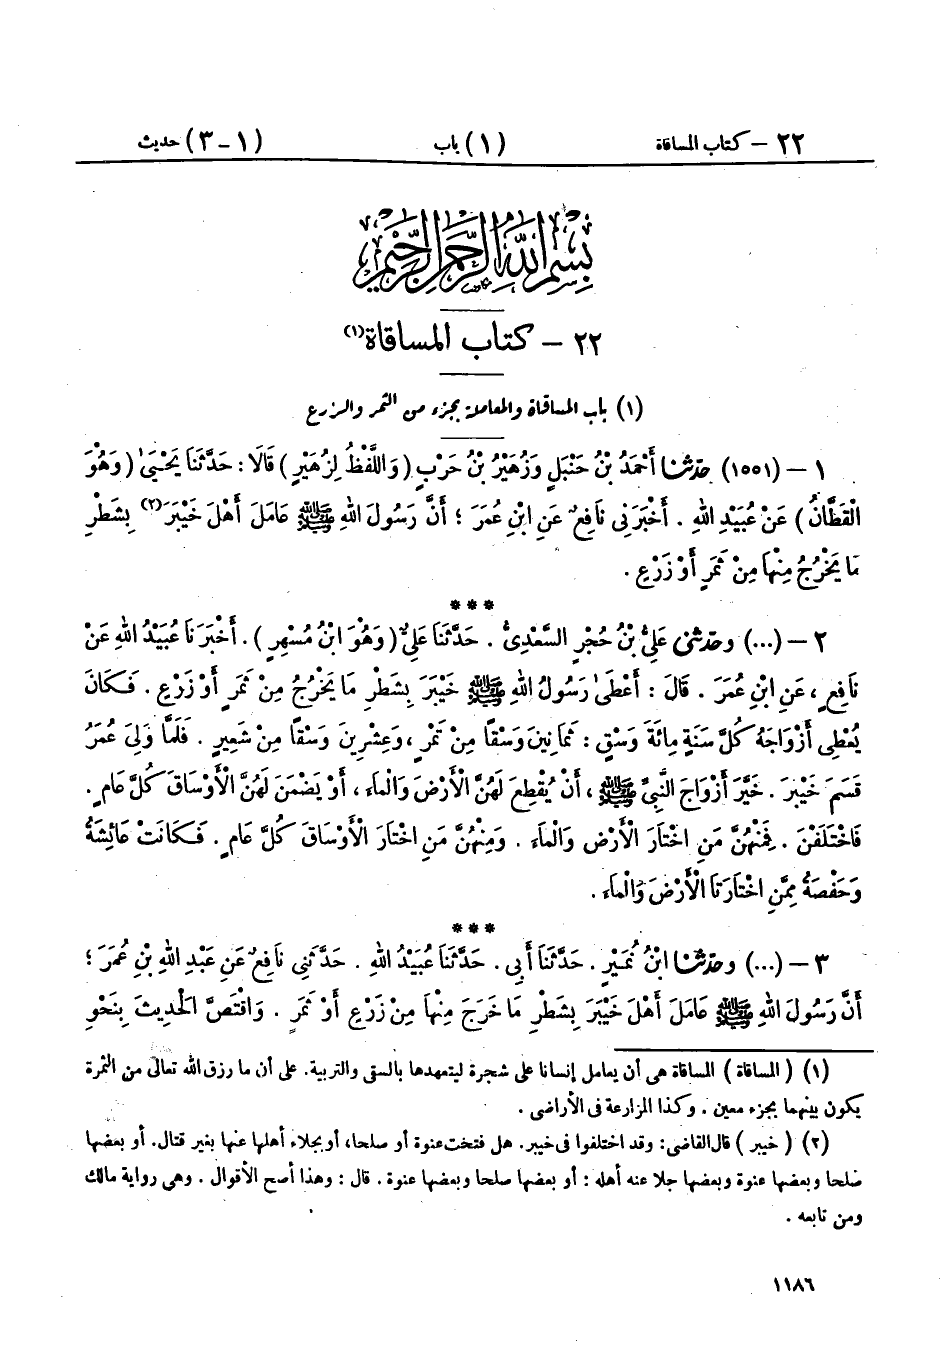 ٢٢ – كتاب المساقاة (١) باب (١ – ٣) حديث
بسم الله الرحمن الرحيم
٢٢ – كتاب المساقاة(١)
(١) باب المساقاة والمعاملة بجزء من الثمر والزرع
١ – (١٥٥١) حدثنا أَحْمَدُ بْنُ حَنْبَلٍ وَزُهَيْرُ بْنُ حَرْبٍ (وَاللَّفْظُ لِزُهَيْرٍ) قَالَا: حَدَّثَنَا يَحْيَىٰ (وَهُوَ
الْقَطَّانُ) عَنْ عُبَيْدِ اللهِ . أَخْبَرَنِي نَافِعٌ عَنِ ابْنِ عُمَرَ ؛ أَنَّ رَسُولَ اللهِ ﷺ عَامَلَ أَهْلَ خَيْبَرَ(٢) بِشَطْرِ
مَا يَخْرُجُ مِنْهَا مِنْ ثَمَرٍ أَوْ زَرْعٍ .
***
٢ – (...) وحدثني عَلِيُّ بْنُ حُجْرٍ السَّعْدِيُّ . حَدَّثَنَا عَلِيٌّ (وَهُوَ ابْنُ مُسْهِرٍ) . أَخْبَرَنَا عُبَيْدُ اللهِ عَنْ
نَافِعٍ ، عَنِ ابْنِ عُمَرَ . قَالَ : أَعْطَىٰ رَسُولُ اللهِ ﷺ خَيْبَرَ بِشَطْرِ مَا يَخْرُجُ مِنْ ثَمَرٍ أَوْ زَرْعٍ . فَكَانَ
يُعْطِي أَزْوَاجَهُ كُلَّ سَنَةٍ مِائَةَ وَسْقٍ : ثَمَانِينَ وَسْقًا مِنْ تَمْرٍ ، وَعِشْرِينَ وَسْقًا مِنْ شَعِيرٍ . فَلَمَّا وَلِيَ عُمَرُ
قَسَمَ خَيْبَرَ . خَيَّرَ أَزْوَاجَ النَّبِيِّ ﷺ ، أَنْ يُقْطِعَ لَهُنَّ الْأَرْضَ وَالْمَاءَ ، أَوْ يَضْمَنَ لَهُنَّ الْأَوْسَاقَ كُلَّ عَامٍ .
فَاخْتَلَفْنَ . فَمِنْهُنَّ مَنِ اخْتَارَ الْأَرْضَ وَالْمَاءَ . وَمِنْهُنَّ مَنِ اخْتَارَ الْأَوْسَاقَ كُلَّ عَامٍ . فَكَانَتْ عَائِشَةُ
وَحَفْصَةُ مِمَّنِ اخْتَارَتَا الْأَرْضَ وَالْمَاءَ .
***
٣ – (...) وحدثنا ابْنُ نُمَيْرٍ . حَدَّثَنَا أَبِي . حَدَّثَنَا عُبَيْدُ اللهِ . حَدَّثَنِي نَافِعٌ عَنْ عَبْدِ اللهِ بْنِ عُمَرَ ؛
أَنَّ رَسُولَ اللهِ ﷺ عَامَلَ أَهْلَ خَيْبَرَ بِشَطْرِ مَا خَرَجَ مِنْهَا مِنْ زَرْعٍ أَوْ ثَمَرٍ . وَاقْتَصَّ الْحَدِيثَ بِنَحْوِ
(١) (المساقاة) المساقاة هى أن يعامل إنسانا على شجرة ليتعهدها بالسقى والتربية. على أن ما رزق الله تعالى من الثمرة
يكون بينهما بجزء معين . وكذا المزارعة فى الأراضى .
(٢) (خيبر) قال القاضى: وقد اختلفوا فى خيبر. هل فتحت عنوة أو صلحا، أو بجلاء أهلها عنها بغير قتال. أو بعضها
صلحا وبعضها عنوة وبعضها جلا عنه أهله : أو بعضها صلحا وبعضها عنوة . قال : وهذا أصح الأقوال . وهى رواية مالك
ومن تابعه .
١١٨٦